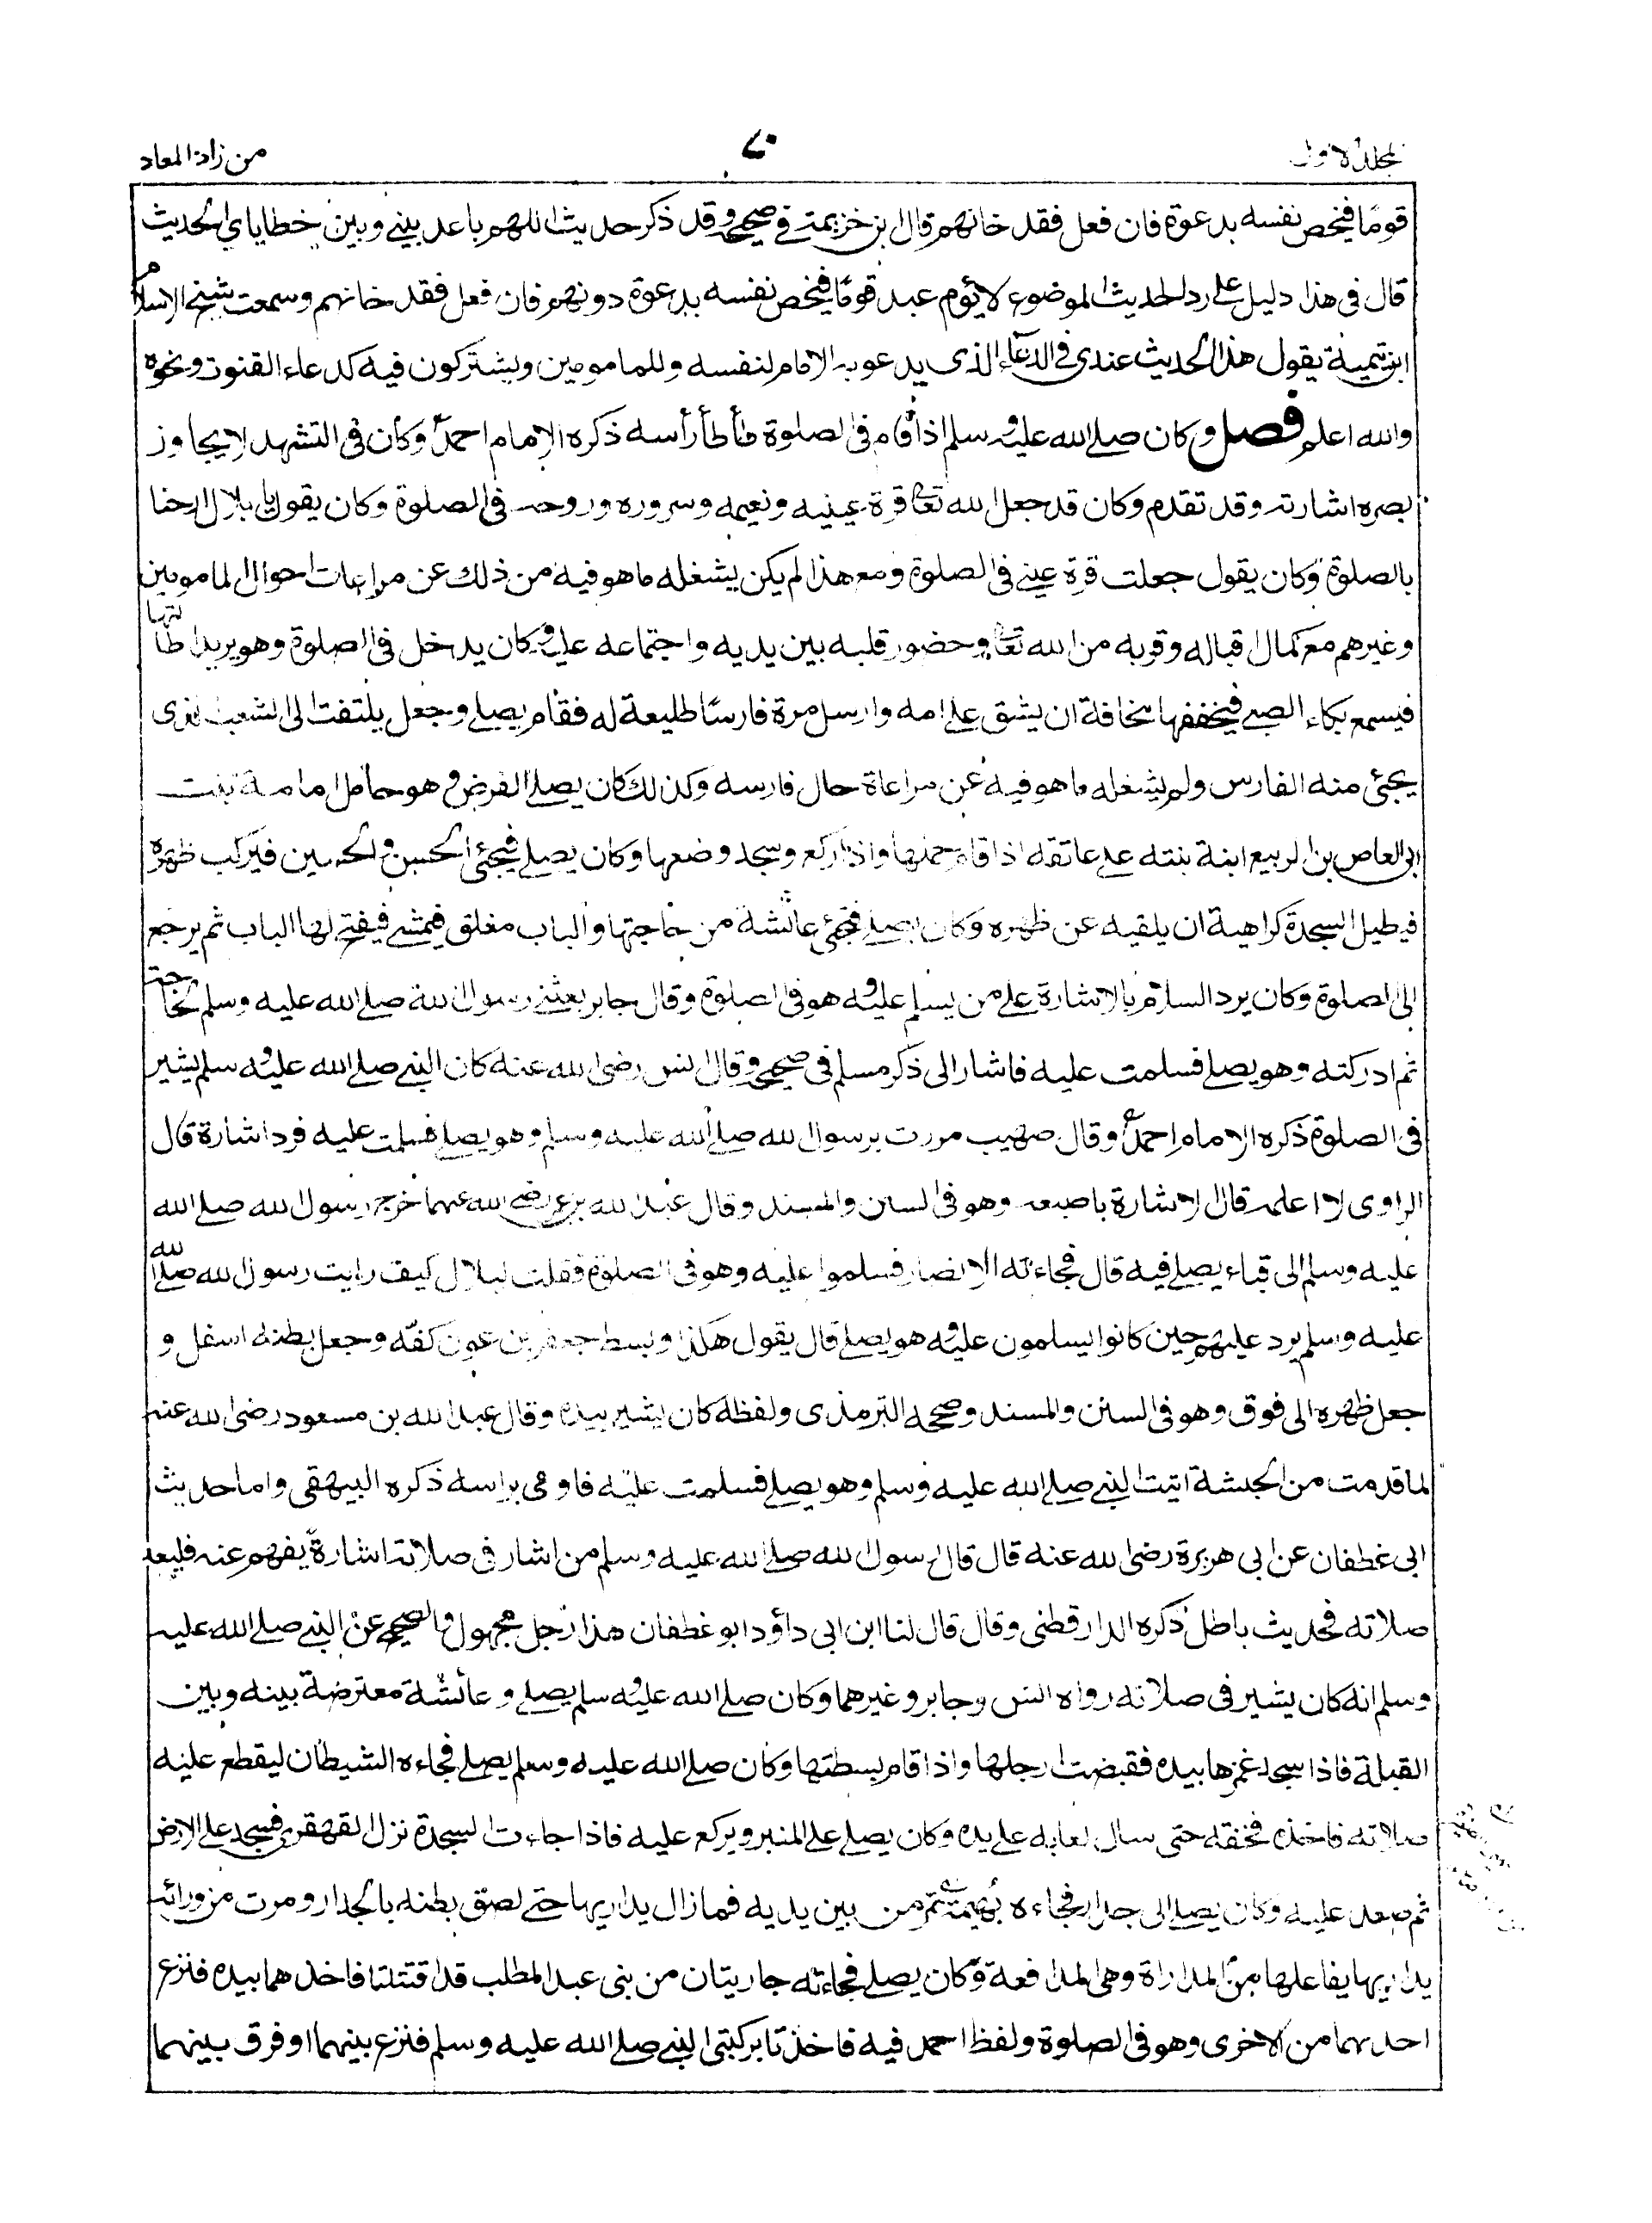 المجلد الاول
٧٠
من زاد المعاد
قومًا فيخص نفسه بدعوة فان فعل فقد خانهم قال ابن خزيمة في صحيحه وقد ذكر حديث اللهم باعد بيني وبين خطاياي الحديث
قال فى هذا دليل على رد الحديث الموضوع لا يؤم عبد قومًا فيخص نفسه بدعوة دونهم فان فعل فقد خانهم وسمعت شيخ الاسلام
ابن تيمية يقول هذا الحديث عندى فى الدعاء الذى يدعو به الامام لنفسه وللمامومين ويشتركون فيه كدعاء القنوت ونحوه
والله اعلم فصل وكان صلى الله عليه وسلم اذا قام فى الصلوة طأطأ رأسه ذكره الامام احمدؒ وكان فى التشهد لا يجاوز
بصره اشارته وقد تقدم وكان قد جعل الله تعالى قرة عينيه ونعيمه وسروره وروحه فى الصلوة وكان يقول يا بلال ارحنا
بالصلوة وكان يقول جعلت قرة عينى فى الصلوة ومع هذا لم يكن يشغله ما هو فيه من ذلك عن مراعات احوال المامومين
وغيرهم مع كمال اقباله وقربه من الله تعالى وحضور قلبه بين يديه واجتماعه عليه وكان يدخل فى الصلوة وهو يريد اطالتها
فيسمع بكاء الصبى فيخففها مخافة ان يشق على امه وارسل مرة فارسًا طليعة له فقام يصلى وجعل يلتفت الى الشعب الذى
يجئ منه الفارس ولم يشغله ما هو فيه عن مراعاة حال فارسه وكذلك كان يصلى الفرض وهو حامل امامة بنت
ابى العاص بن الربيع ابنة بنته على عاتقه اذا قام حملها واذا ركع وسجد وضعها وكان يصلى فيجئ الحسن والحسين فيركب ظهره
فيطيل السجدة كراهية ان يلقيه عن ظهره وكان يصلى فتجئ عائشة من حاجتها والباب مغلق فيمشى فيفتح لها الباب ثم يرجع
الى الصلوة وكان يرد السلام بالاشارة على من يسلم عليه وهو فى الصلوة وقال جابر بعثنى رسول الله صلى الله عليه وسلم لحاجة
ثم ادركته وهو يصلى فسلمت عليه فاشار الى ذكره مسلم فى صحيحه وقال انس رضى الله عنه كان النبى صلى الله عليه وسلم يشير
فى الصلوة ذكره الامام احمدؒ وقال صهيب مررت برسول الله صلى الله عليه وسلم وهو يصلى فسلمت عليه فرد اشارة قال
الراوى لا اعلمه قال الا اشارة باصبعه وهو فى السنن والمسند وقال عبد الله بن عمر رضى الله عنهما خرج رسول الله صلى الله
عليه وسلم الى قباء يصلى فيه قال فجاءته الانصار فسلموا عليه وهو فى الصلوة فقلت لبلال كيف رايت رسول الله صلى الله
عليه وسلم يرد عليهم حين كانوا يسلمون عليه وهو يصلى قال يقول هكذا وبسط جعفر بن عون كفه وجعل بطنه اسفل و
جعل ظهره الى فوق وهو فى السنن والمسند وصححه الترمذى ولفظه كان يشير بيده وقال عبد الله بن مسعود رضى الله عنه
لما قدمت من الحبشة اتيت النبى صلى الله عليه وسلم وهو يصلى فسلمت عليه فاومى براسه ذكره البيهقى واما حديث
ابى غطفان عن ابى هريرة رضى الله عنه قال قال رسول الله صلى الله عليه وسلم من اشار فى صلاته اشارة يفهم عنه فليعد
صلاته فحديث باطل ذكره الدارقطنى وقال قال لنا ابن ابى داؤد ابو غطفان هذا رجل مجهول والصحيح عن النبى صلى الله عليه
وسلم انه كان يشير فى صلاته رواه انس وجابر وغيرهما وكان صلى الله عليه وسلم يصلى وعائشة معترضة بينه وبين
القبلة فاذا سجد غمزها بيده فقبضت رجلها واذا قام بسطتها وكان صلى الله عليه وسلم يصلى فجاءه الشيطان ليقطع عليه
صلاته فاخذه فخنقه حتى سال لعابه على يده وكان يصلى على المنبر ويركع عليه فاذا جاءت السجدة نزل القهقرى فسجد على الارض
ثم صعد عليه وكان يصلى الى جدار فجاءه بهيمة تمر من بين يديه فما زال يداريها حتى لصق بطنه بالجدار ومرت من ورائه
يداريها يفاعلها من المداراة وهى المدافعة وكان يصلى فجاءته جاريتان من بنى عبد المطلب قد اقتتلتا فاخذهما بيده فنزع
احدهما من الاخرى وهو فى الصلوة ولفظ احمد فيه فاخذتا بركبتى النبى صلى الله عليه وسلم فنزع بينهما او فرق بينهما